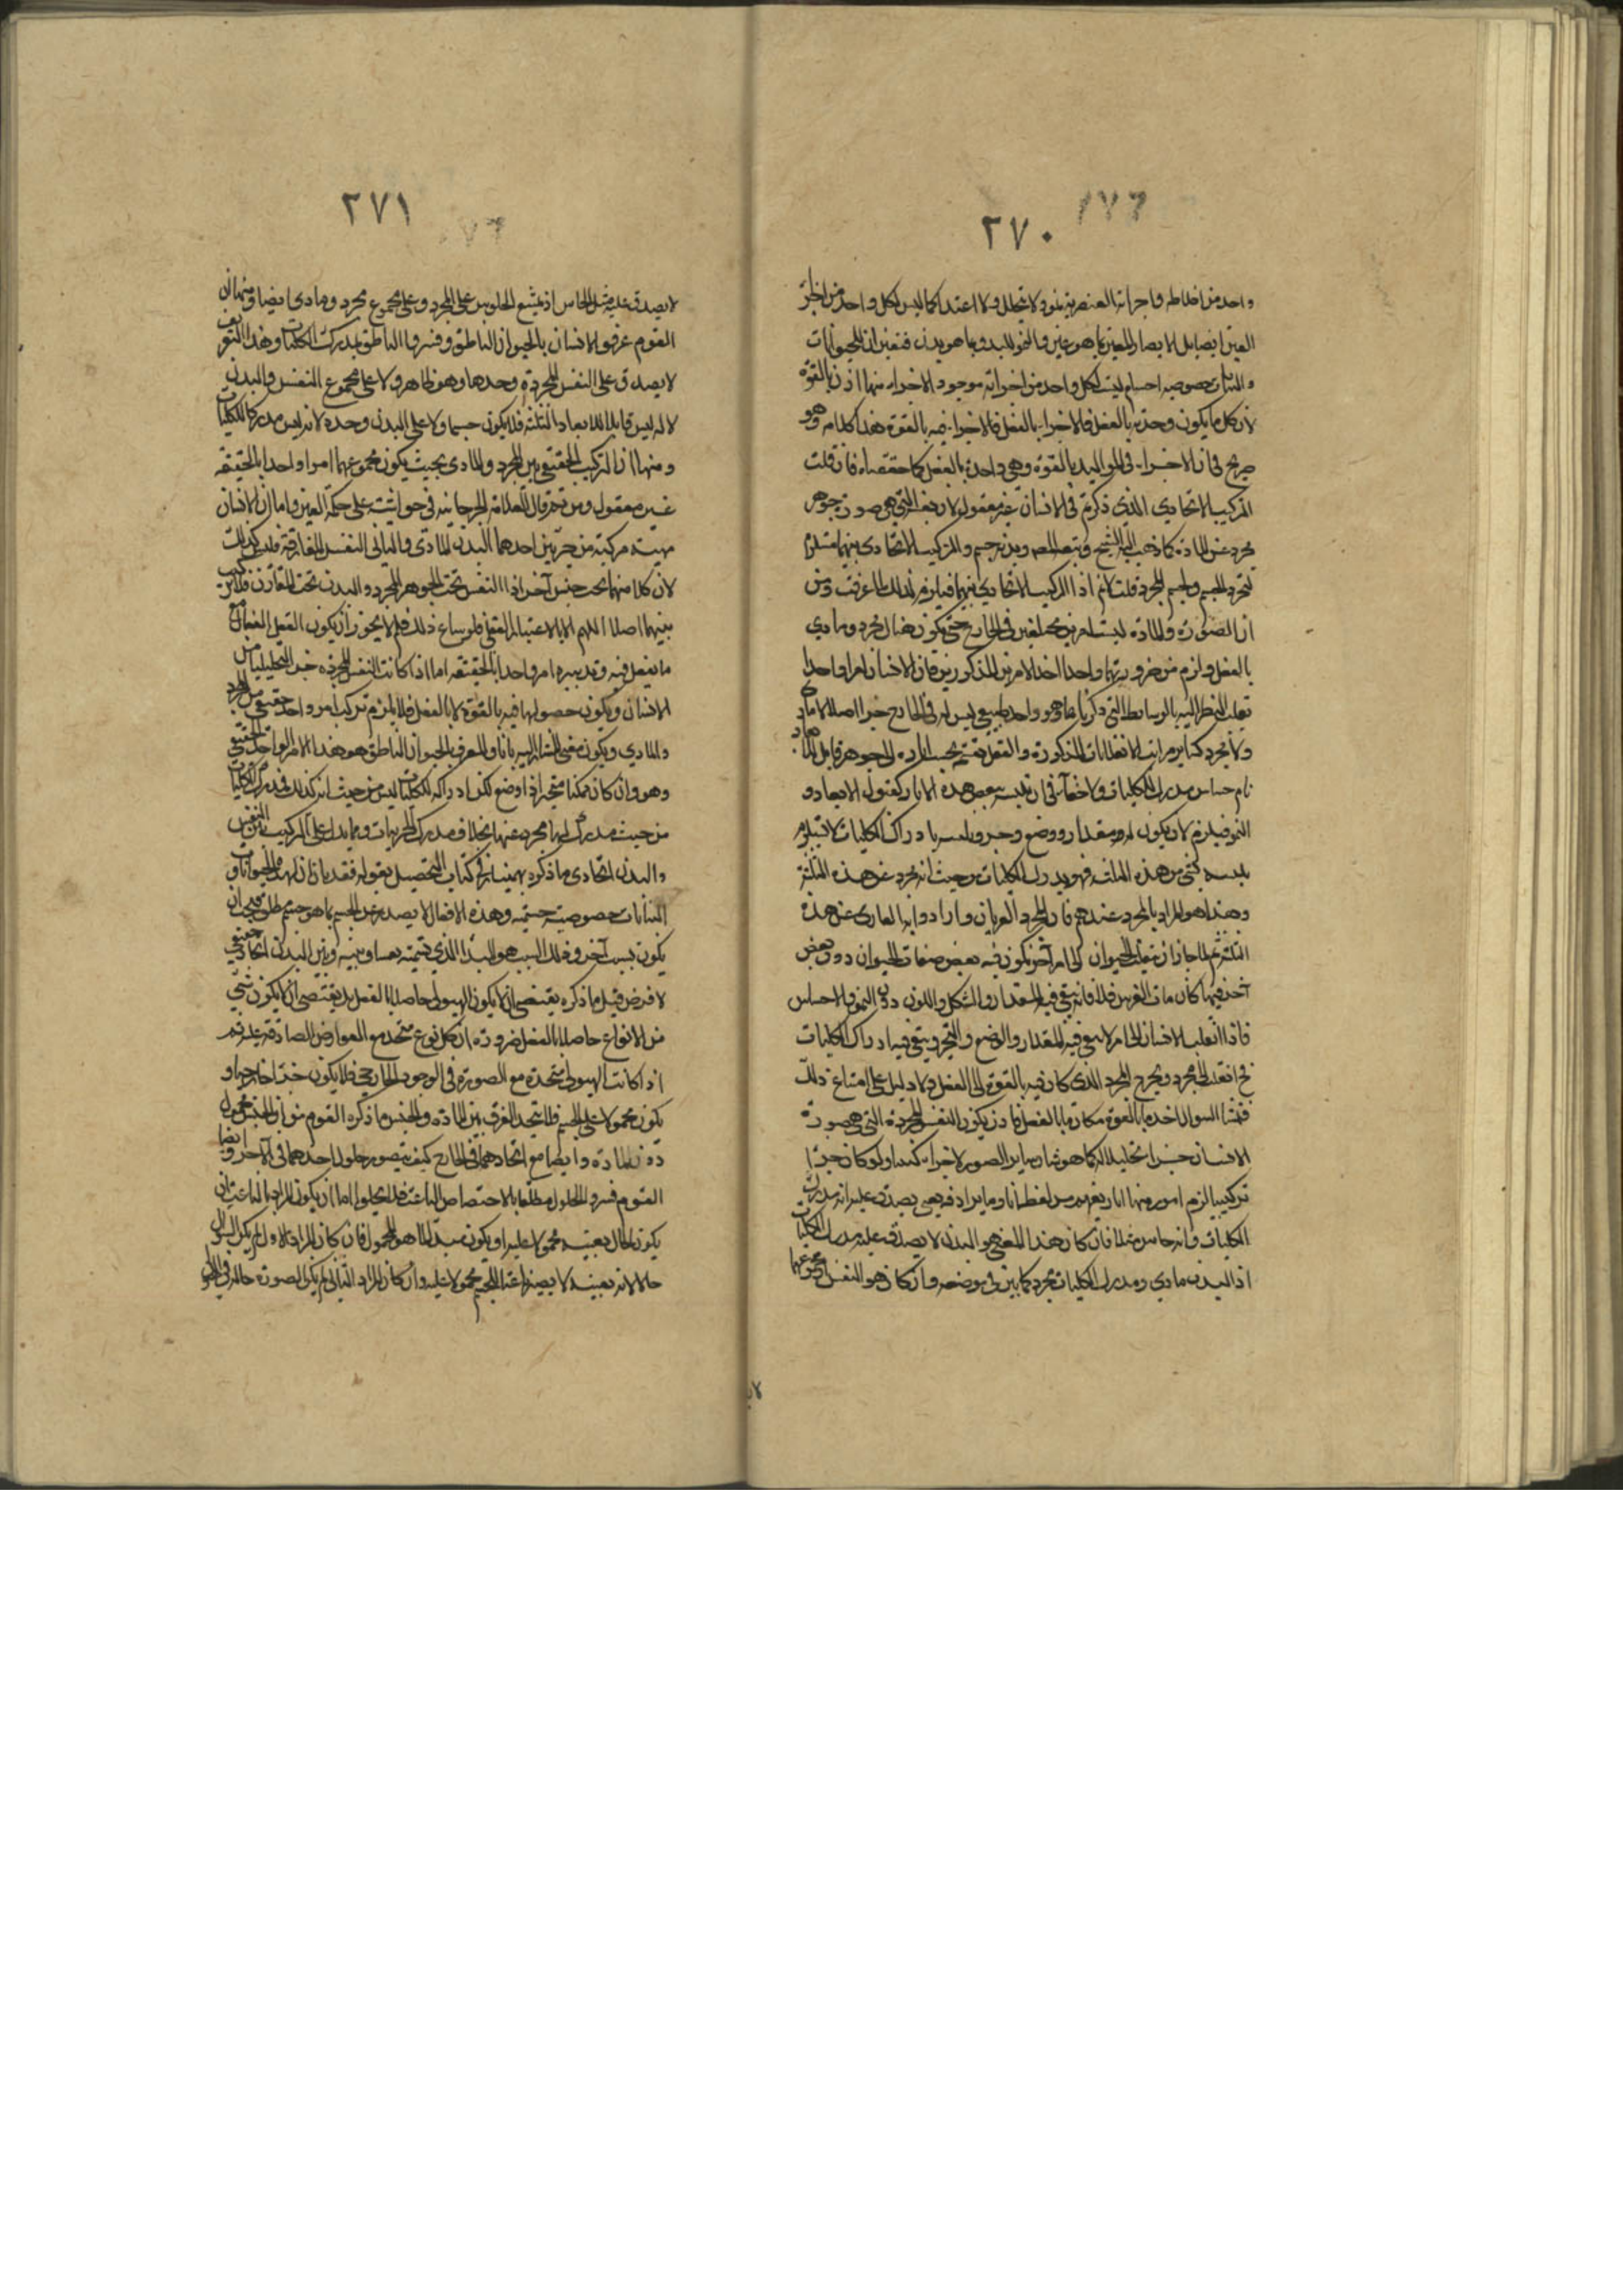 ٢٧٠
واحد من اخلاطه واجزائه العنصرية نمو ولا تحلل ولا اعتدا كما ليس لكل واحد من اجزا
العين ابصار بل الابصار للعين بما هو عين والنمو للبدن بما هو بدن فتعين ان للحيوانات
والنباتات خصوصية اجسام ليست لكل واحد من اجزائه موجود الاجزاء منها اذن بالقوة
لان كل ما يكون وحدته بالفعل فالاجزاء بالفعل فالاجزاء فيه بالقوة هذا كلامه وهو
صريح في ان الاجزاء في المواليد بالقوة وهي واحدة بالفعل كما حققناه فان قلت
التركيب الاتحادي الذي ذكرتم في الانسان غير معقول لان نفسه التي هي صورته جوهر
مجرد عن المادة كما ذهب اليه الشيخ وتبعه المص وبدنه جسم والتركيب الاتحادي بينهما مستلزم
لتجرد الجسم وتجسم المجرد قلت لانم اذا التركيب الاتحادي بينهما فيلزم لذلك لما عرفت من
ان الصورة والمادة ليستا امرين مختلفين في الخارج حتى يكون هناك مجرد ومادي
بالفعل ولزم من ضرورتهما واحدا اتخذ الامرين المذكورين فان الانسان امر واحد
تقلب النظر اليه بالوسائط التي ذكرناها وهو واحد طبيعي ليس له في الخارج جزء اصلا لا مادي
ولا مجرد كسائر مراتب الانقلابات المذكورة والعقل يقسمه بحسب اثاره الى جوهر قابل للابعاد
نام حساس مدرك للكليات ولا خفاء في ان تلبسه ببعض هذه الاثار كقبول الابعاد و
النمو فيلزم لان يكون له مقدار ووضع وحيز وتلبسه بادراك الكليات لا يستلزم
تلبسه بشي من هذه الثلثة فهو يدرك الكليات من حيث انه مجرد عن هذه الثلثة
وهذا هو المراد بالمجرد عندهم فان المجرد العريان وارادوا به العاري عن هذه
الثلثة ثم لما جاز ان ينقلب الحيوان الى امر آخر يكون فيه بعض صفات الحيوان دون بعض
آخر فيها كان مات الفرس مثلا فانه يبقى فيه المقدار والشكل واللون دون النمو والاحساس
فاذا انقلب الانسان الخ لم لا يبقى فيه المقدار والوضع والتحيز ويبقى فيه ادراك الكليات
فح انقلب الى مجرد ويخرج المجرد الذي كان فيه بالقوة الى الفعل ولا دليل على امتناع ذلك
فمنشأ السوال اخذ ما بالقوة مكان ما بالفعل فاذن يكون النفس المجردة التي هي صورة
الانسان جزءا تحليليا له كما هو شان سائر الصور لا جزءا تركيبيا ولو كان جزءا
تركيبيا لزم امور منها انا نريد من لفظ انا وما يرادفه معنى يصدق عليه انه مدرك
الكليات وانه جالس مثلا فان كان هذا المعنى هو البدن لا يصدق عليه مدرك الكليات
اذ البدن مادي ومدرك الكليات مجرد كما بين في موضعه وان كان هو النفس او مجموعهما
٢٧١
لا يصدق عليه مثل الجالس اذ يمتنع الجلوس على المجرد وعلى مجموع مجرد ومادي ايضا ومنها ان
القوم عرفوا الانسان بالحيوان الناطق وفسروا الناطق بمدرك الكليات وهذا التعريف
لا يصدق على النفس المجردة وحدها وهو ظاهر ولا على مجموع النفس والبدن
لانه ليس قابلا للابعاد الثلثة فلا يكون جسما ولا على البدن وحده لانه ليس مدركا للكليات
ومنها ان التركيب الحقيقي بين المجرد والمادي بحيث يكون مجموعهما امرا واحدا بالحقيقة
غير معقول ومن ثم قال العلامة الجرجاني في حواشيه على حكمة العين واما ان الانسان
مهية مركبة من جزئين احدهما البدن المادي والثاني النفس المفارقة فليس كذلك
لان كلا منهما تحت جنس آخر اذ النفس تحت الجوهر المجرد والبدن تحت المقارن فلا تركيب
بينهما اصلا اللهم الا بالاعتبار العقلي فلو ساغ ذلك فلم لا يجوز ان يكون العقل الفعال مع
ما يفعل فيه وتدبيره امرا واحدا بالحقيقة اما اذا كانت النفس المجردة جزءا تحليليا من
الانسان ويكون حصولها فيه بالقوة لا بالفعل فلا يلزم تركيب امر واحد حقيقي من المجرد
والمادي ويكون معنى المشار اليه بانا والمعرف بالحيوان الناطق هو هذا الامر الواحد الحقيقي
وهو وان كان ممكنا متحيزا ذا وضع لكن ادراكه للكليات ليس من حيث انه كذلك فمدرك الكليات
من حيث مدرك لها مجرد عنها بخلاف مدرك الجزئيات ومما يدل على ان التركيب بين النفس
والبدن اتحادي ما ذكره بهمنيار في كتاب التحصيل بقوله فقد بان ان لهذه الحيوانات و
النباتات خصوصية جسمية وهذه الافعال لا يصدر عن الجسم بما هو جسم مطلق فيجب ان
يكون بسبب آخر وذلك السبب هو المبدأ الذي نسميه نفسا وبينه وبين البدن اتحاد حقيقي
لا فرض قيل ما ذكره يقتضي ان لا يكون الهيولى حاصلا بالفعل بل يقتضي ان لا يكون شي
من الانواع حاصلا بالفعل ضرورة ان كل نوع متحد مع العوارض الصادقة عليه ثم
اذا كانت الهيولى متحدة مع الصورة في الوجود الخارجي فلا يكون جزءا خارجيا و
يكون محمولا على الجسم فلا يتجه الفرق بين المادة والجنس وما ذكره القوم من ان الجنس محمول
دون المادة وايضا مع اتحادهما في الخارج كيف يتصور حلول احدهما في الآخر وايضا
القوم فسروا الحلول مطلقا بالاختصاص الناعت فلا يخلو اما ان يكون المراد بالناعت ان
يكون الحال بعينه محمولا عليه او يكون مبدأ لما هو المحمول فان كان المراد الاول لم يكن السواد
حالا لانه بعينه لا يصير نعتا للجسم محمولا عليه وان كان المراد الثاني لم يكن الصورة حالة في الهيولى